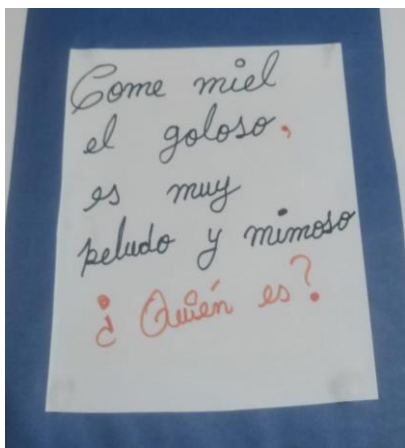 Come miel
el goloso,
es muy
peludo y mimoso
¿Quién es?